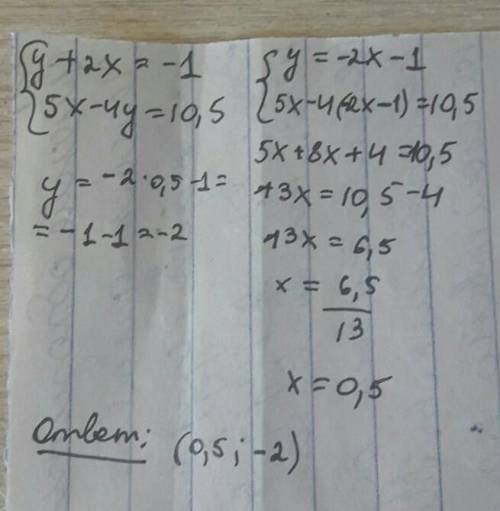 { y + 2x = -1
{ 5x - 4y = 10,5
y = -2 · 0,5 - 1 =
= -1 - 1 = -2
{ y = -2x - 1
{ 5x - 4(-2x - 1) = 10,5
5x + 8x + 4 = 10,5
13x = 10,5 - 4
13x = 6,5
x = 6,5
13
x = 0,5
Ответ: (0,5; -2)